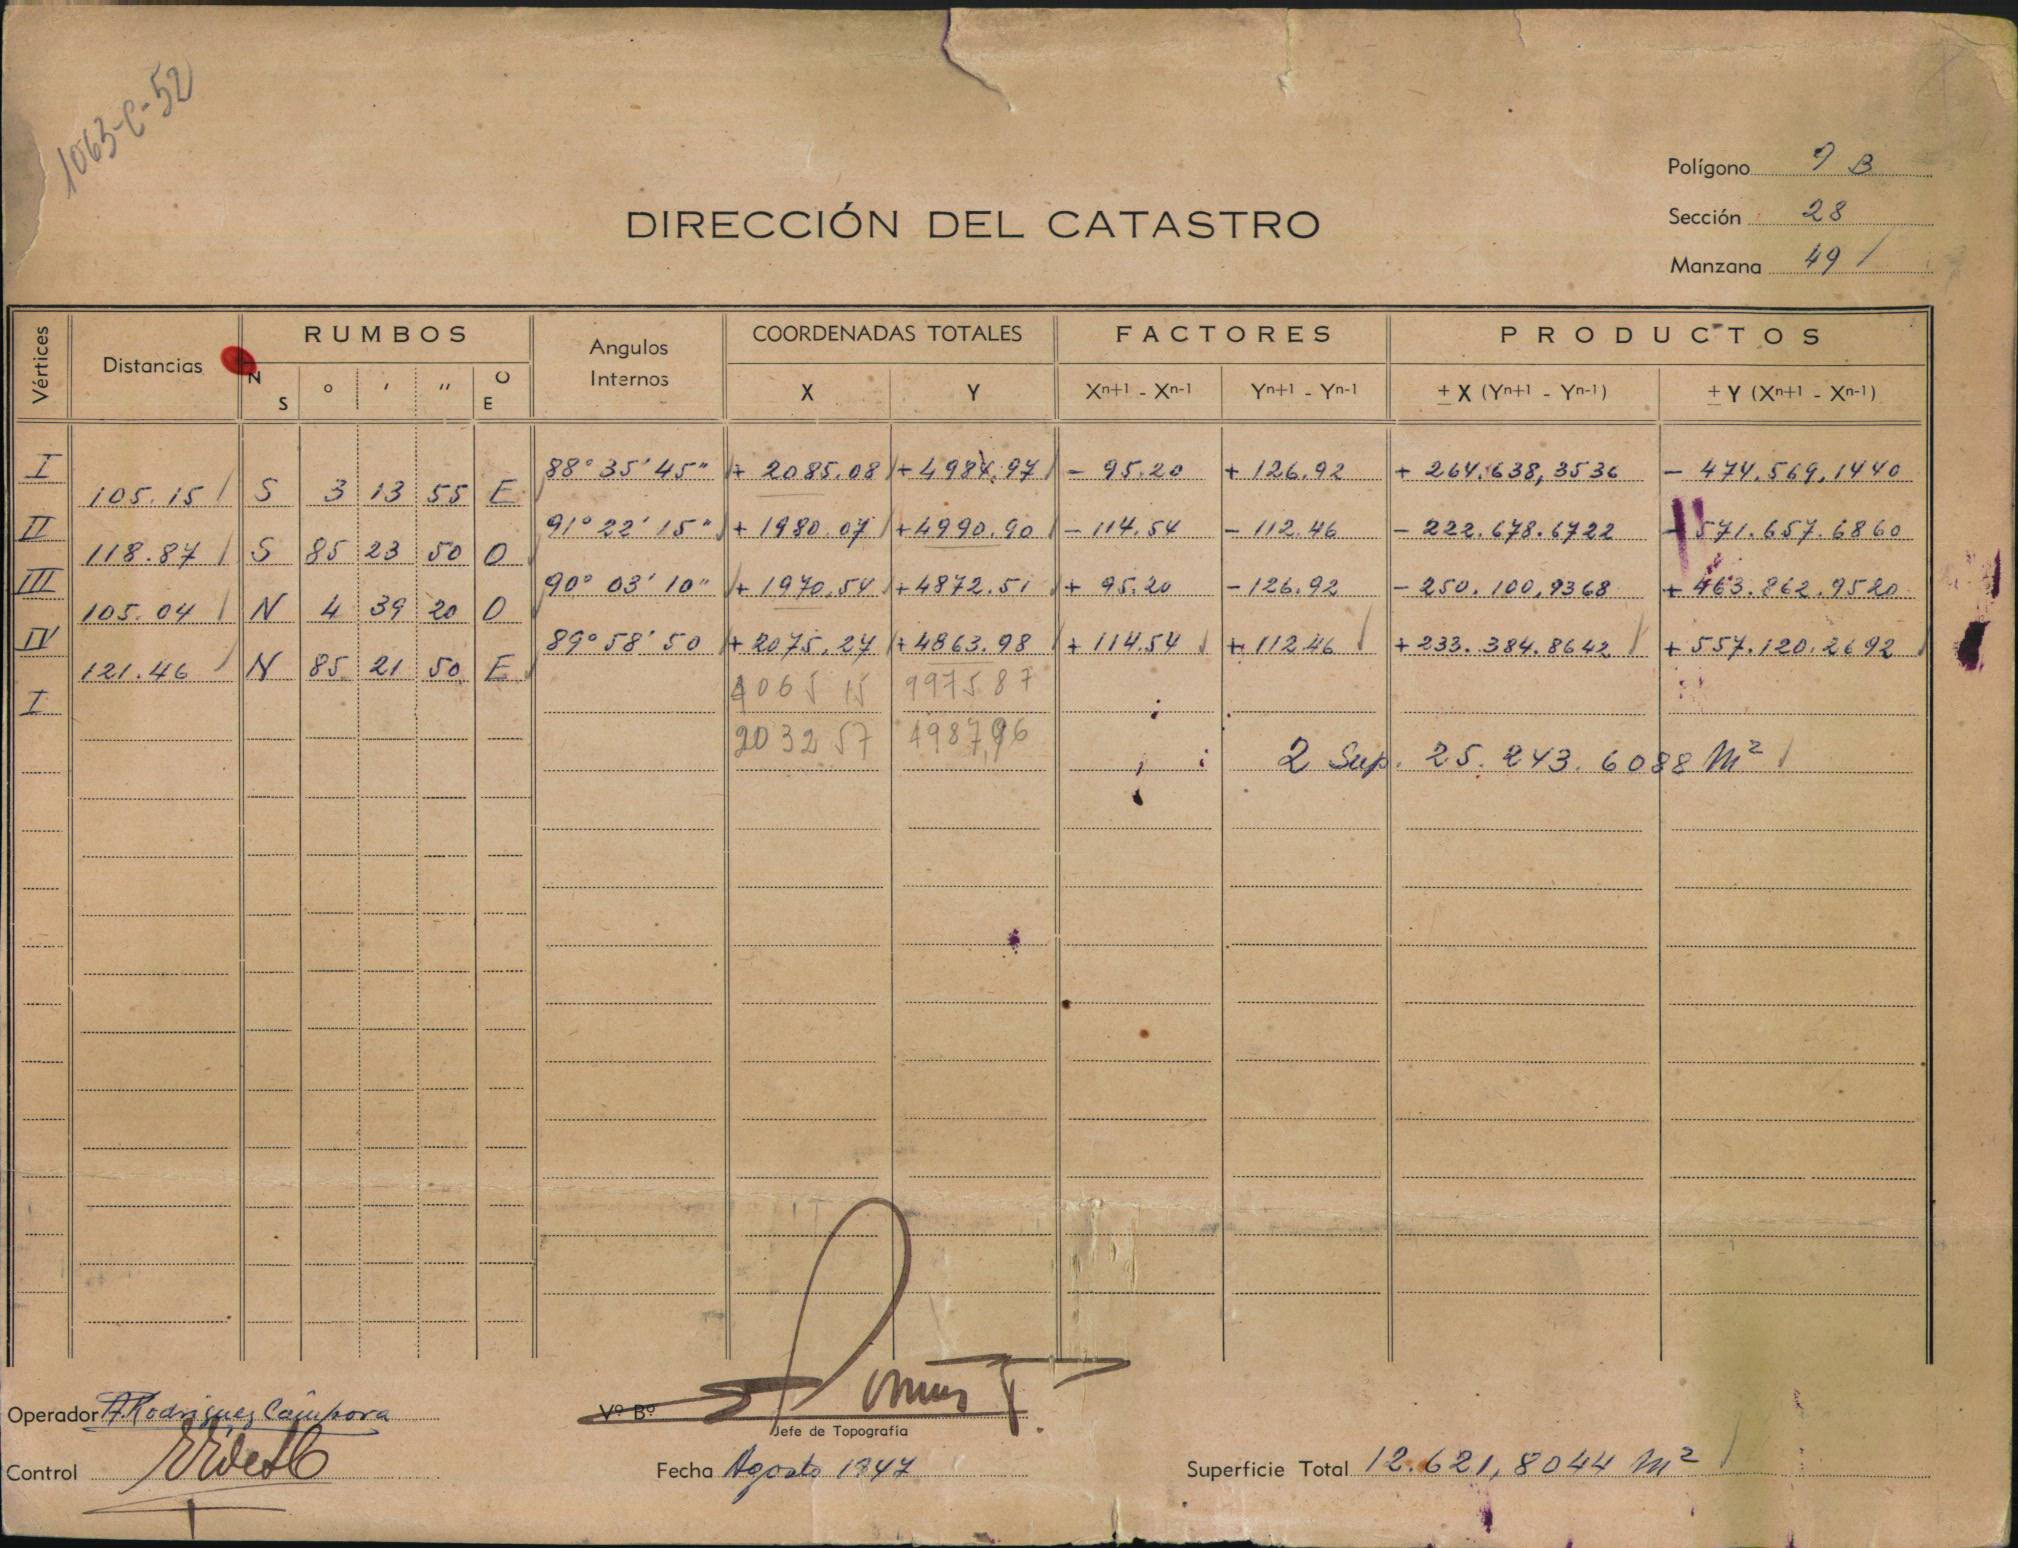 1063-C-52
Polígono 9 B
Sección 28
Manzana 49
DIRECCIÓN DEL CATASTRO
Vértices Distancias RUMBOS Angulos Internos COORDENADAS TOTALES FACTORES PRODUCTOS
N S ° ' " O E X Y Xn+1 - Xn-1 Yn+1 - Yn-1 ± X (Yn+1 - Yn-1) ± Y (Xn+1 - Xn-1)
I 88° 35' 45" + 2085.08 + 4984.97 - 95.20 + 126.92 + 264.638,3536 - 474.569,1440
105.15 S 3 13 55 E
II 91° 22' 15" + 1980.07 + 4990.90 - 114.54 - 112.46 - 222.678.6722 - 571.657.6860
118.87 S 85 23 50 O
III 90° 03' 10" + 1970.54 + 4872.51 + 95.20 - 126.92 - 250.100,9368 + 463.862.9520
105.04 N 4 39 20 O
IV 89° 58' 50 + 2075.27 + 4863.98 + 114.54 + 112.46 + 233.384.8642 + 557.120.2692
121.46 N 85 21 50 E
I 4065 15 9975 87
2032 57 4987,96
2 Sup. 25.243.6088 m²
Operador A. Rodriguez Cámpora
Vº Bº
Jefe de Topografía
Control
Fecha Agosto 1947
Superficie Total 12.621,8044 m²